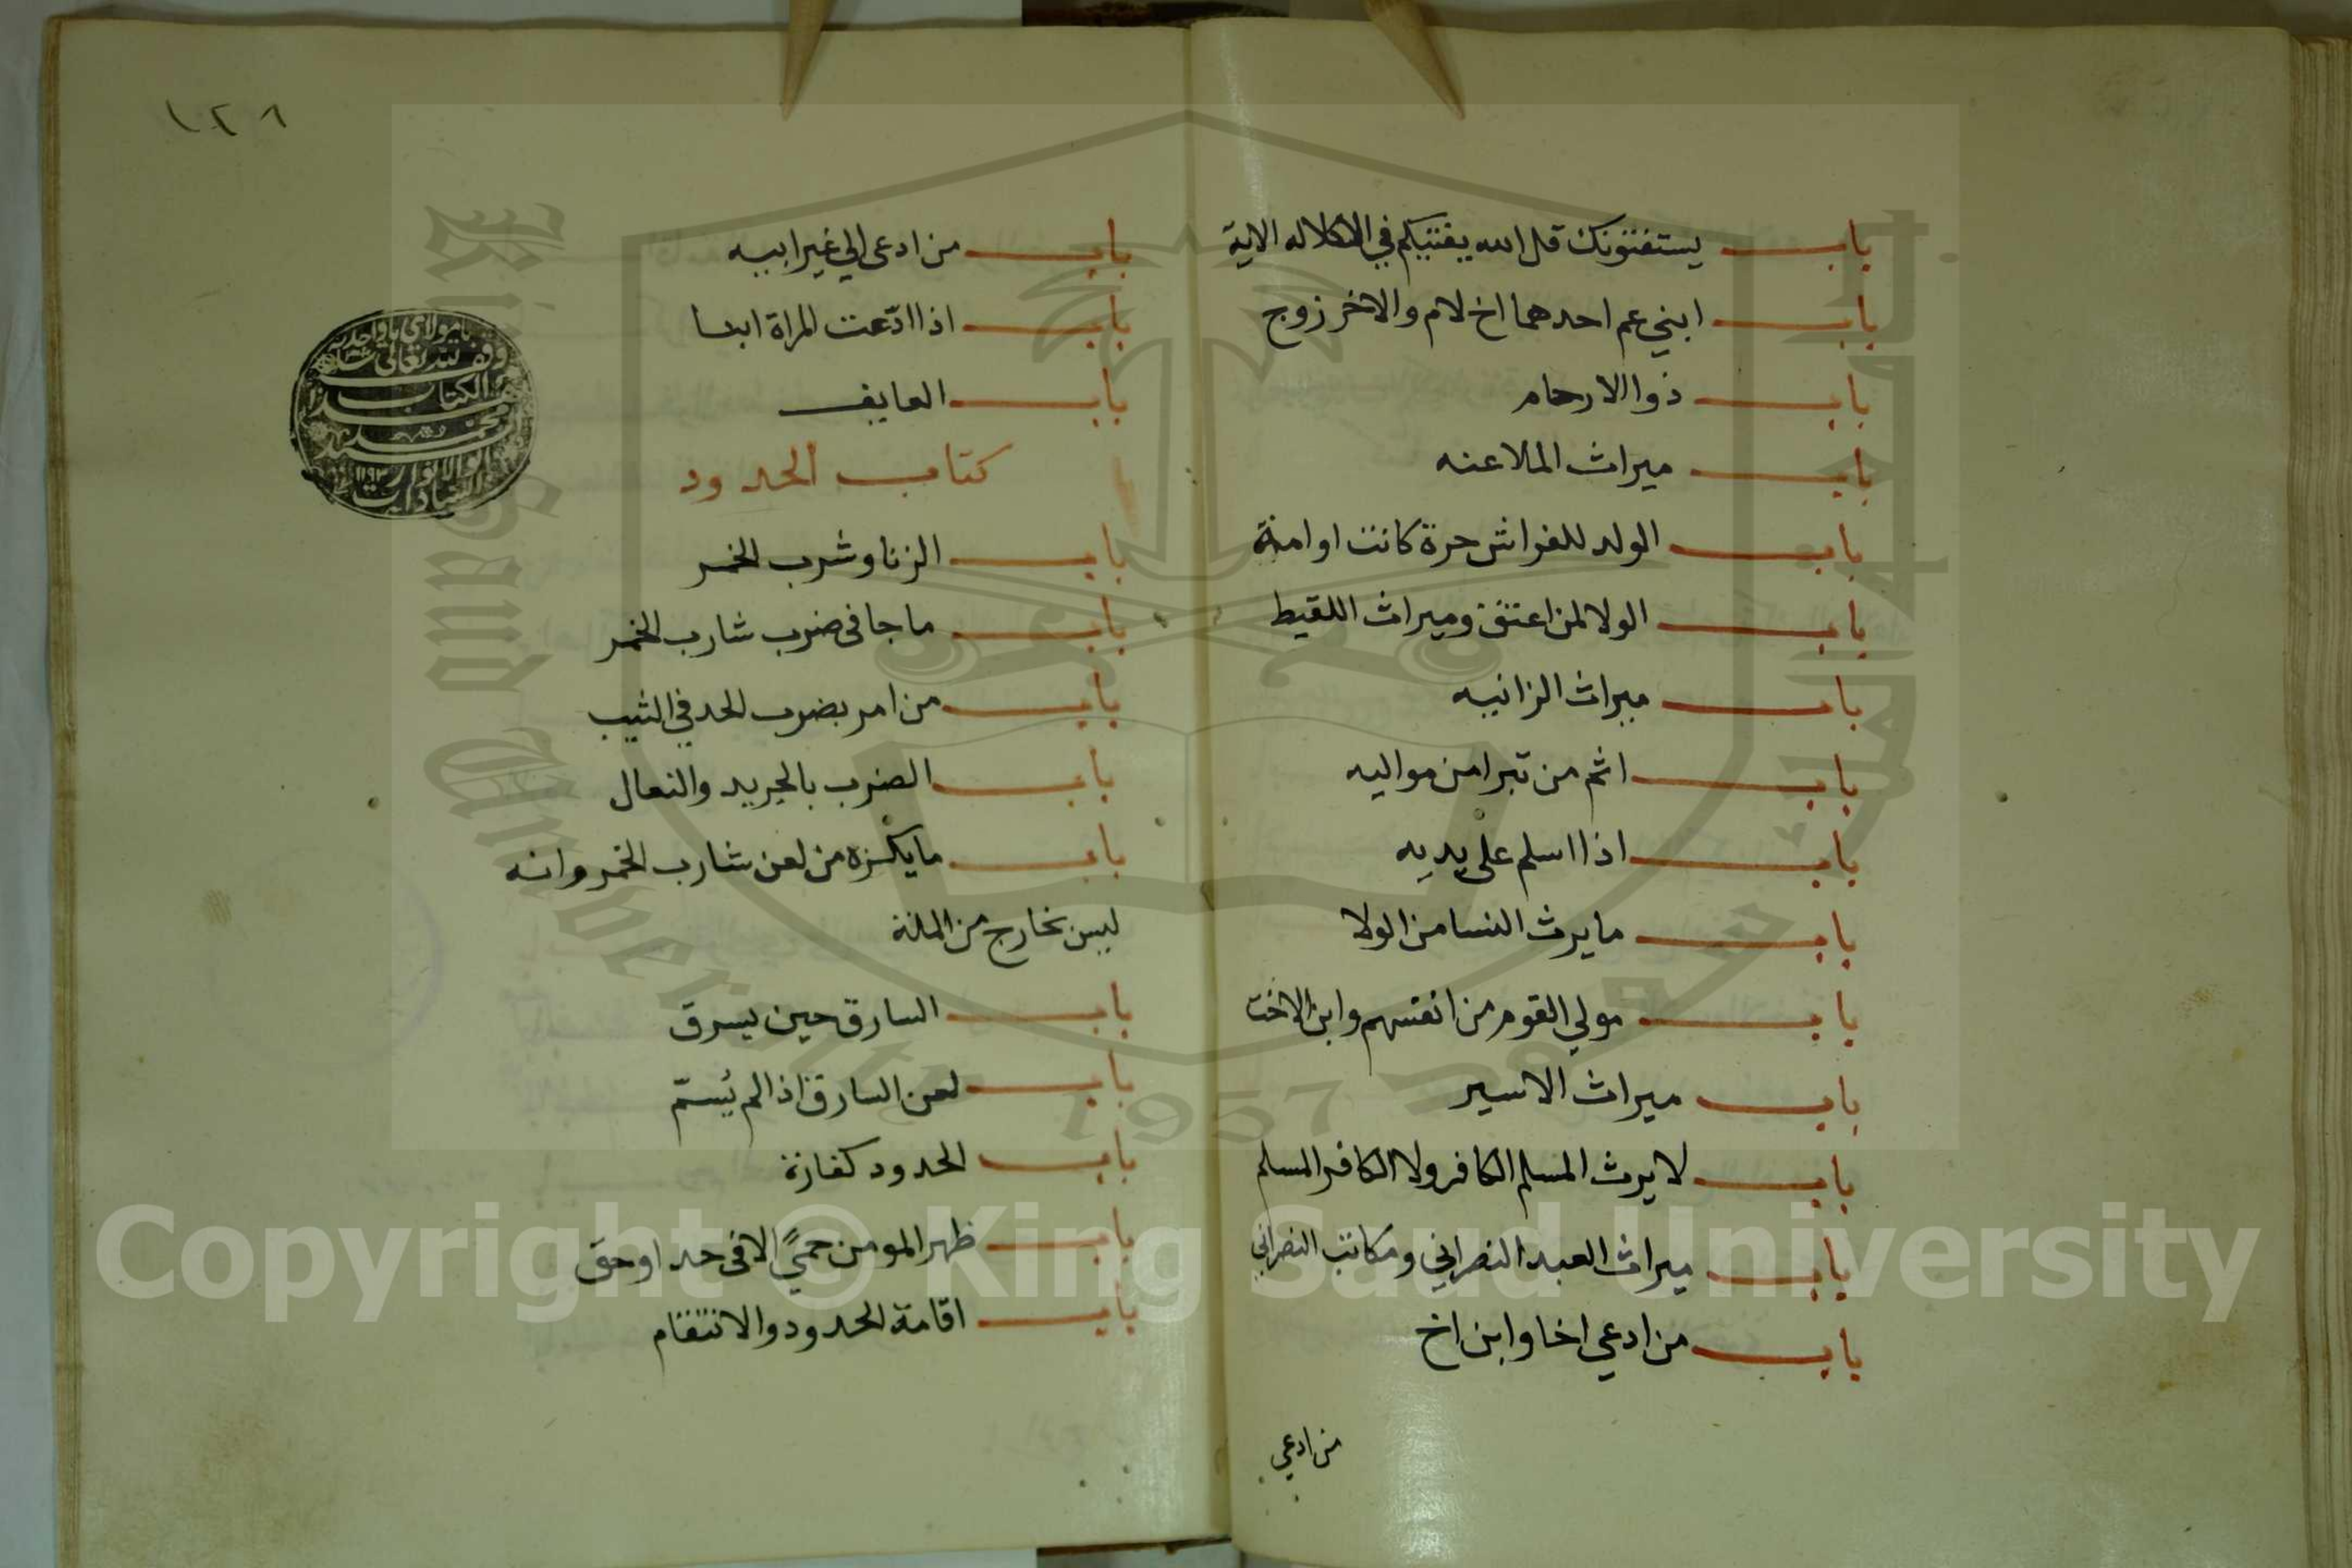 باب يستفتونك قل الله يفتيكم في الكلاله الاية
باب ابني عم احدهما اخ لام والاخر زوج
باب ذوا الارحام
باب ميراث الملاعنه
باب الولد للفراش حرة كانت او امة
باب الولا لمن اعتق وميراث اللقيط
باب ميراث الزانيه
باب اثم من تبرا من مواليه
باب اذا اسلم على يديه
باب ما يرث النسا من الولا
باب مولي القوم من انفسهم وابن الاخت
باب ميراث الاسير
باب لا يرث المسلم الكافر ولا الكافر المسلم
باب ميراث العبد النصراني ومكاتب النصراني
باب من ادعي اخا وابن اخ
من ادعي
١٢٨
باب من ادعى الي غير ابيه
باب اذا ادّعت المراة ابنا
باب العايف
كتاب الحدود
باب الزنا وشرب الخمر
باب ما جا في ضرب شارب الخمر
باب من امر بضرب الحد في الثيب
باب الضرب بالجريد والنعال
باب ما يكره من لعن شارب الخمر وانه
ليس بخارج من الملة
باب السارق حين يسرق
باب لعن السارق اذا لم يُسمّ
باب الحدود كفارة
باب ظهر المومن حميً الا في حد او حق
باب اقامة الحدود والانتقام
وقف لله تعالى
الكتاب
محمد
١١٩٢
King Saud University
1957
Copyright © King Saud University